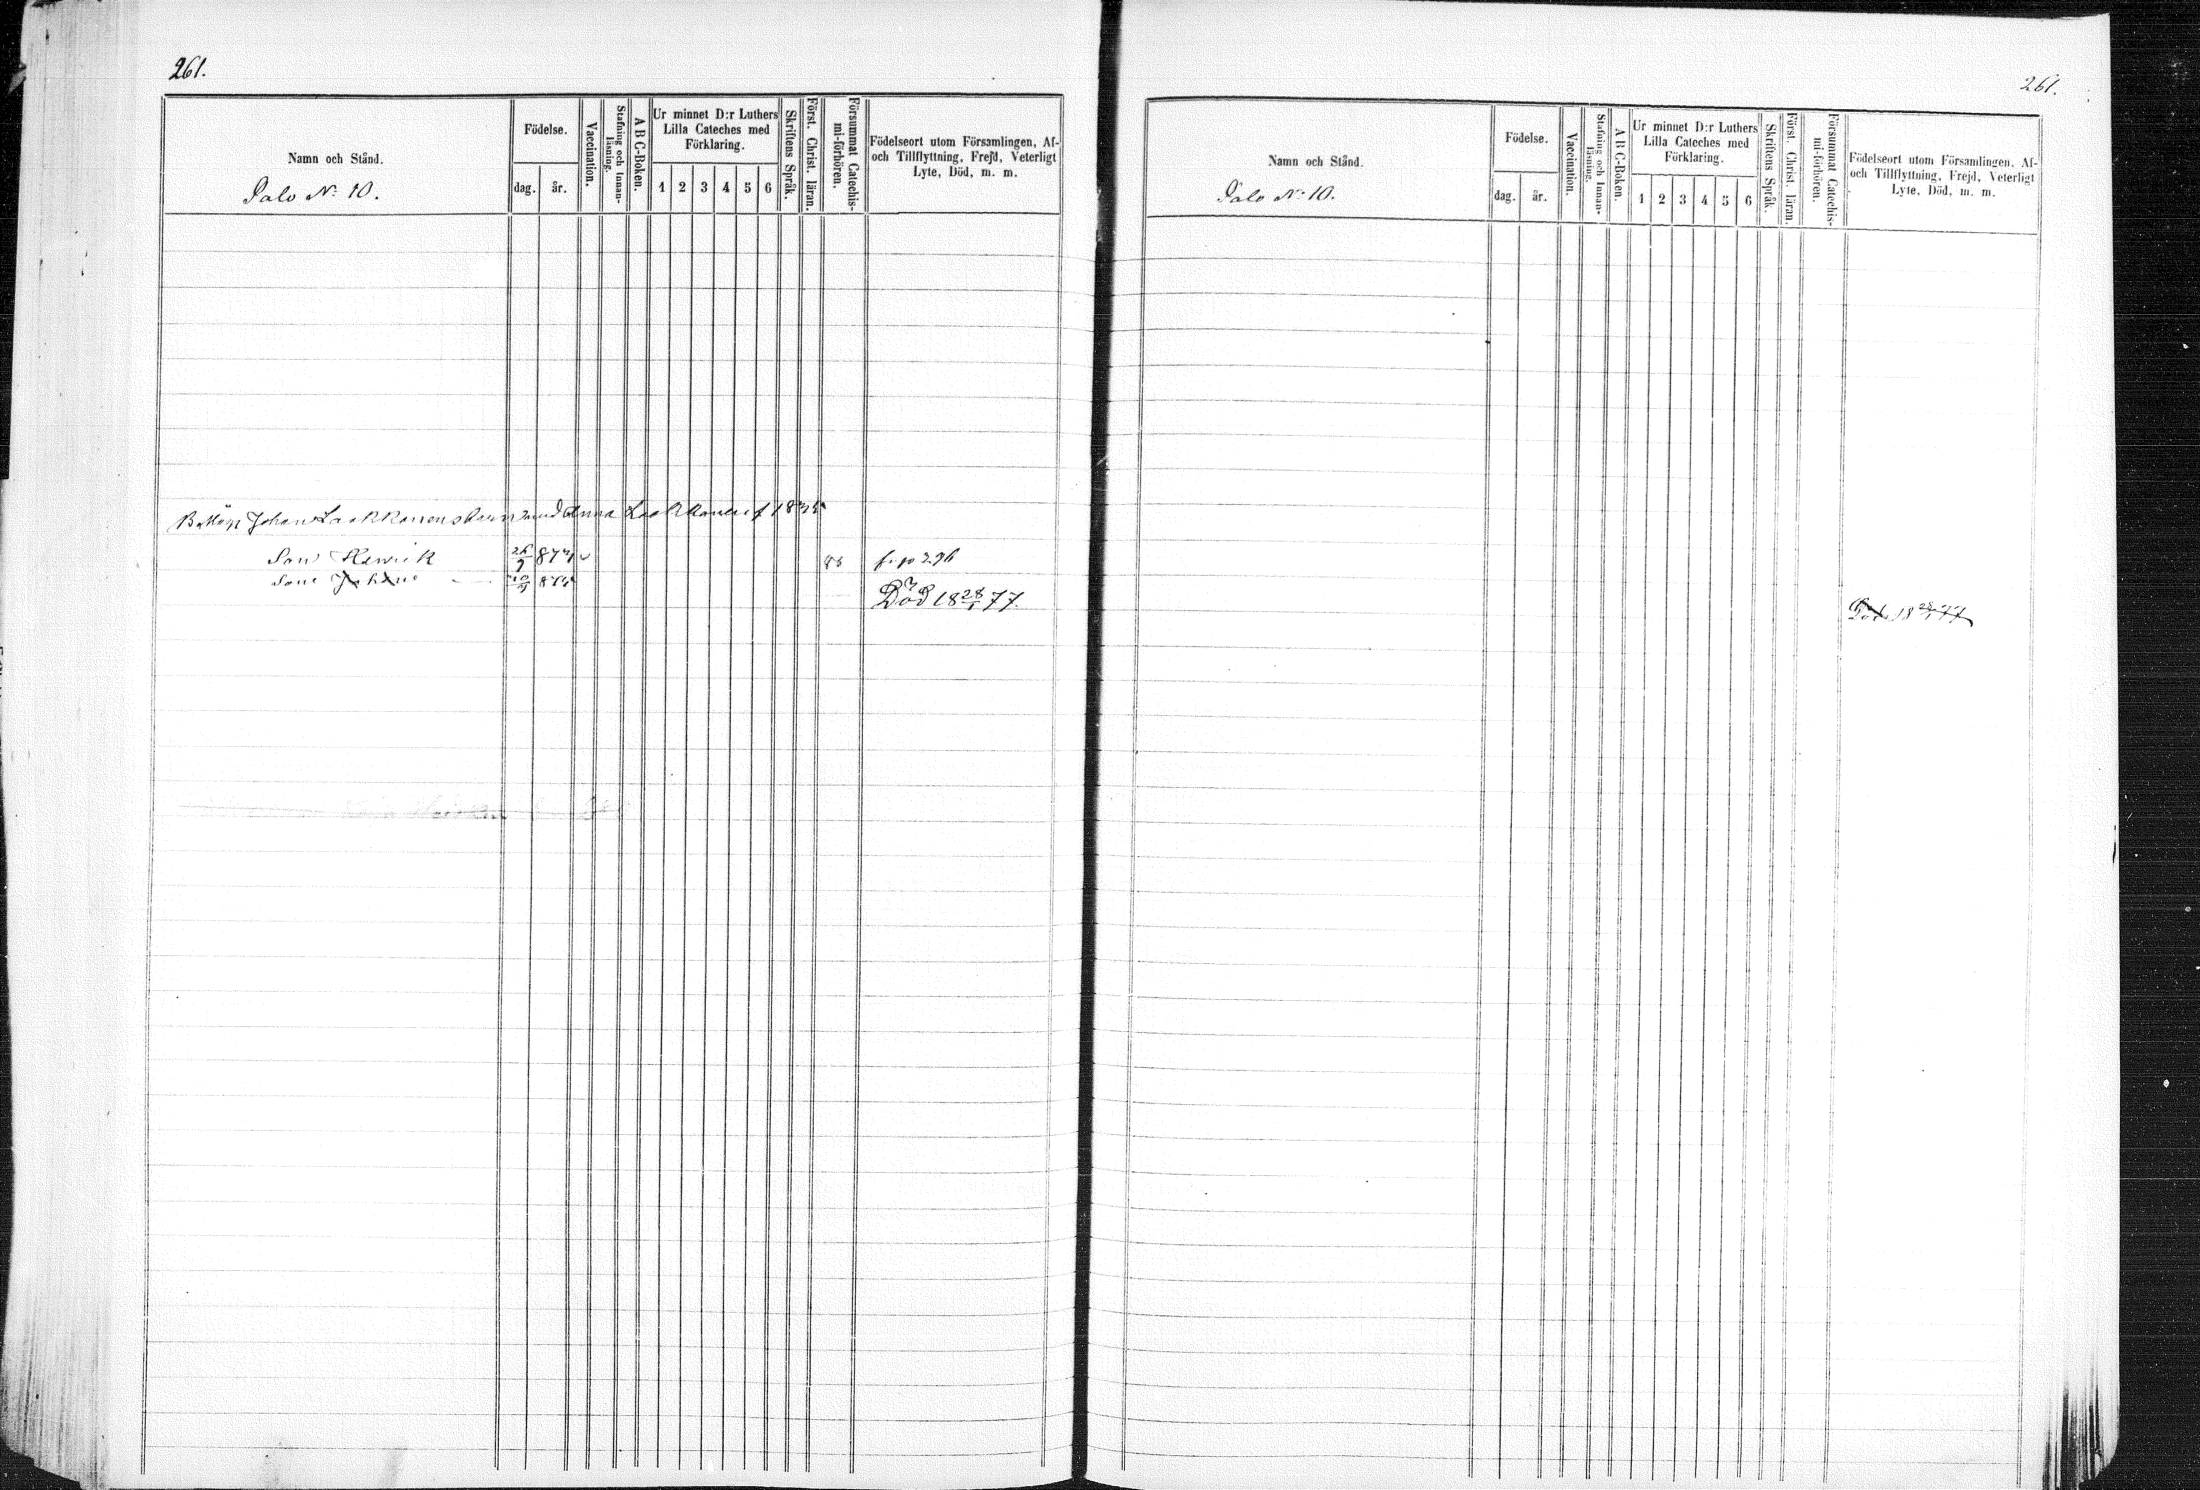 261.
Namn och Stånd.
Födelse.
dag.
år.
Vaccination.
Stafning och Innan-
läsning.
A B C-Boken.
Ur minnet D:r Luthers
Lilla Cateches med
Förklaring.
1 2 3 4 5 6
Skriftens Språk.
Först. Christ. läran.
Försummat Catechis-
mi-förhören.
Födelseort utom Församlingen, Af-
och Tillflyttning, Frejd, Veterligt
Lyte, Död, m. m.
Palo No 10.
Johan Laakkonens barn med Anna Laakkonen f 1835
Son Henrik 26/9 874 83 f. p 296
Son Johan 10/9 875
Död 18 28/1 77.
261.
Namn och Stånd.
Födelse.
dag.
år.
Vaccination.
Stafning och Innan-
läsning.
A B C-Boken.
Ur minnet D:r Luthers
Lilla Cateches med
Förklaring.
1 2 3 4 5 6
Skriftens Språk.
Först. Christ. läran.
Försummat Catechis-
mi-förhören.
Födelseort utom Församlingen, Af-
och Tillflyttning, Frejd, Veterligt
Lyte, Död, m. m.
Palo No 10.
Död 18 28/1 77